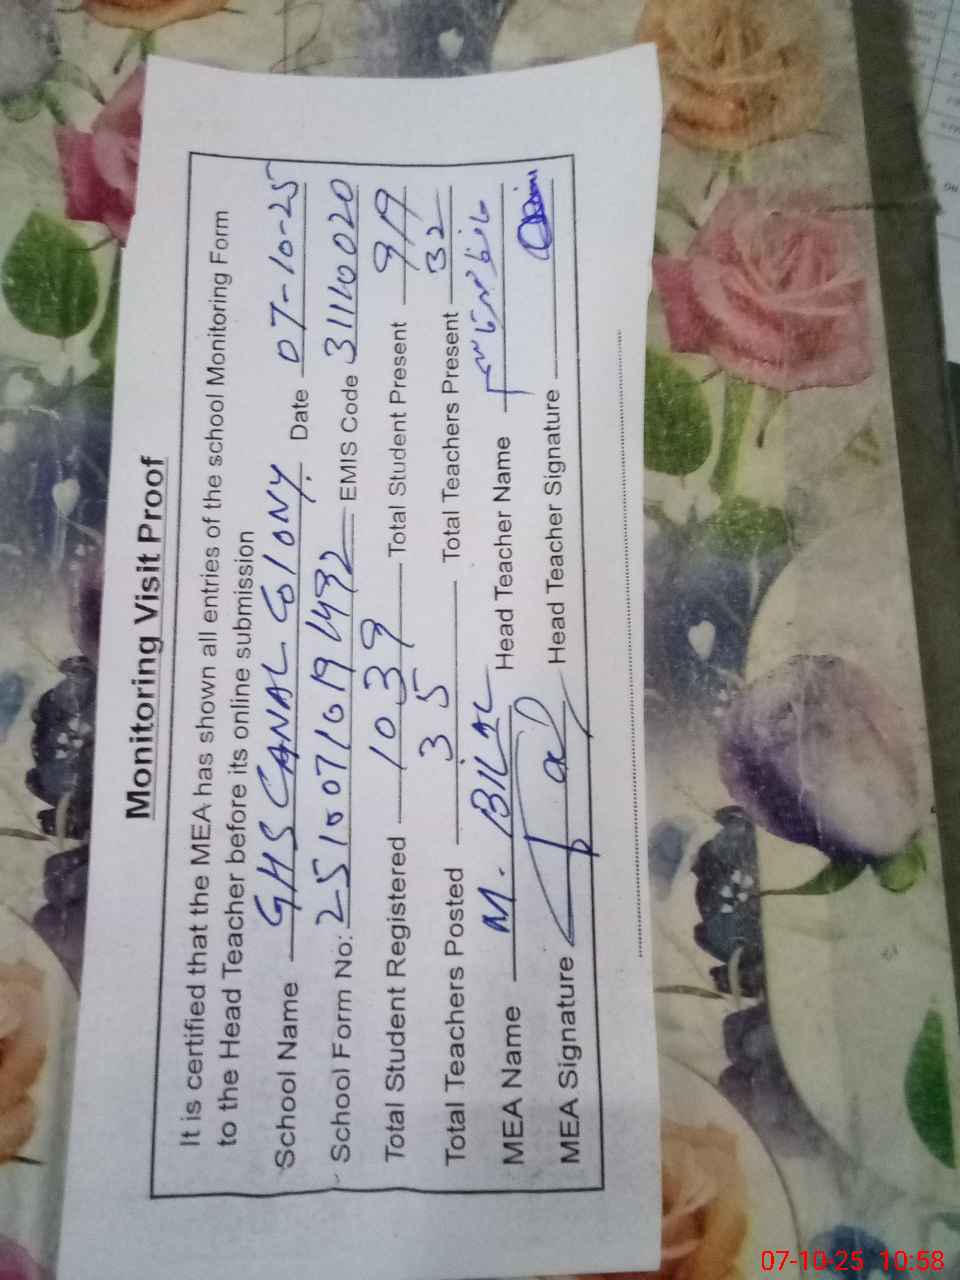 Monitoring Visit Proof
It is certified that the MEA has shown all entries of the school Monitoring Form
to the Head Teacher before its online submission
School Name GHS CANAL COlONY. Date 07-10-25
School Form No: EMIS Code 31110020
Total Student Registered 1039 Total Student Present 919
Total Teachers Posted 35 Total Teachers Present 32
MEA Name M. BILAL Head Teacher Name
MEA Signature Head Teacher Signature
07-10-25 10:58